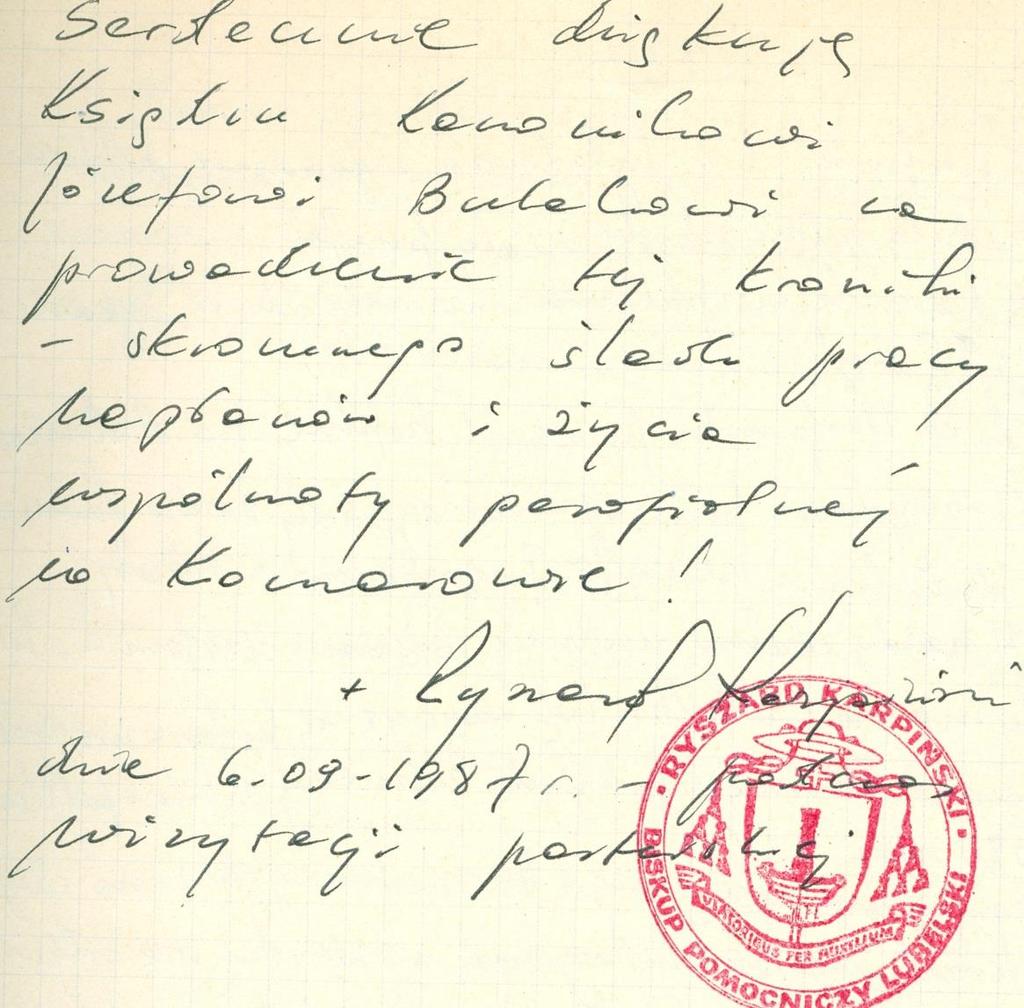 Serdecznie dziękuję
Księdzu Kanonikowi
Józefowi Bulakowi za
prowadzenie tej kroniki
- skromnego śladu pracy
kapłanów i życia
wspólnoty parafialnej
w Komarowie!
+ Ryszard Karpiński
dnia 6.09-1987 r. - podczas
wizytacji pasterskiej
• RYSZARD KARPIŃSKI •
BISKUP POMOCNICZY LUBELSKI
VIATORIBUS FER AUXILIUM